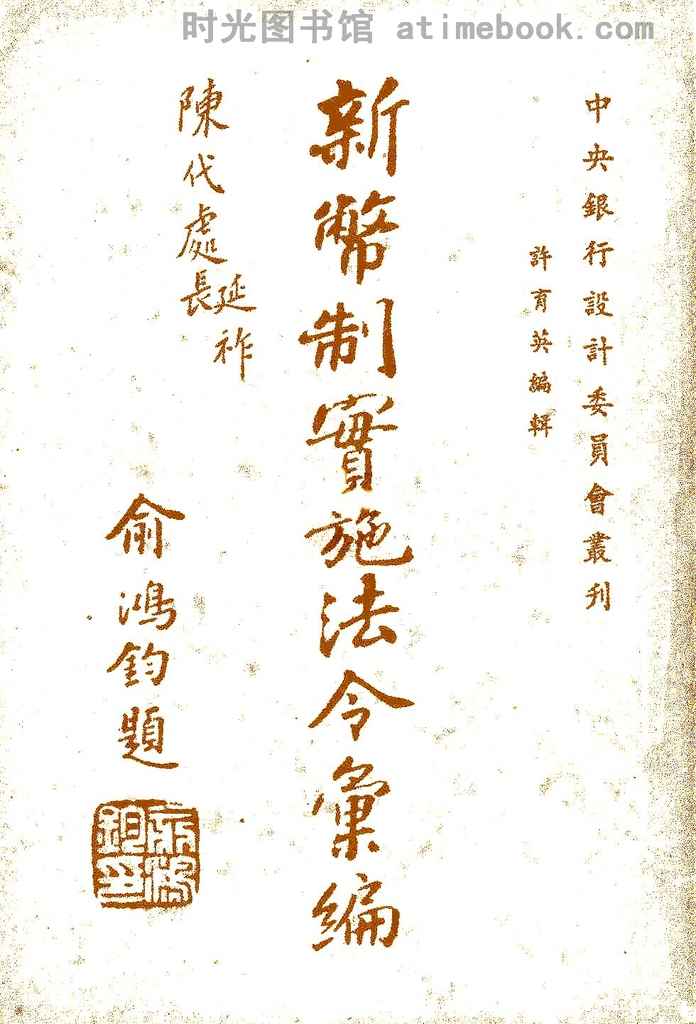 时光图书馆 atimebook.com
中央銀行設計委員會叢刊
許育英編輯
新幣制實施法令彙編
陳代處長延祚
俞鴻鈞題
俞鴻鈞印